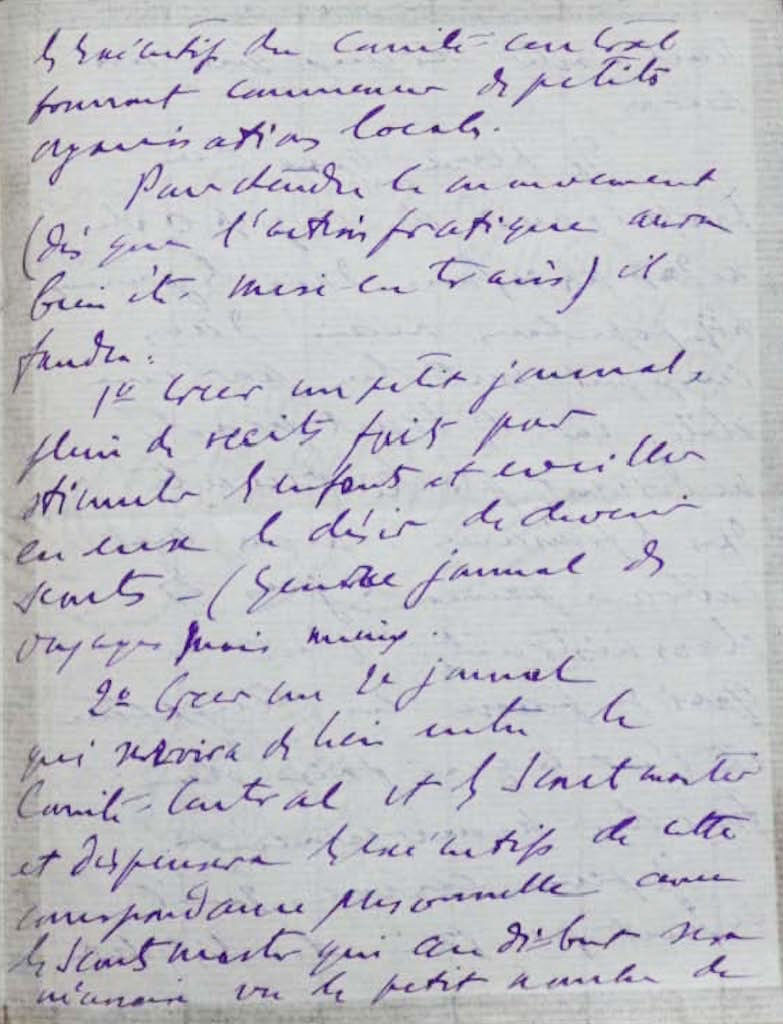 les exécutifs du Comité central
pourront commencer de petites
organisations locales.
Pour étendre le mouvement
(dès que l'action pratique aura
bien été mise en train) il
faudra :
1º Créer un petit journal,
plein de récits faits pour
stimuler les enfants et éveiller
en eux le désir de devenir
scouts – (Genre journal des
voyages mais mieux.
2º Créer un 2e journal
qui servira de lien entre le
Comité-Central et les Scoutmaster
et dispensera les exécutifs de cette
correspondance personnelle avec
les Scoutmaster qui au début sera
nécessaire vu le petit nombre de